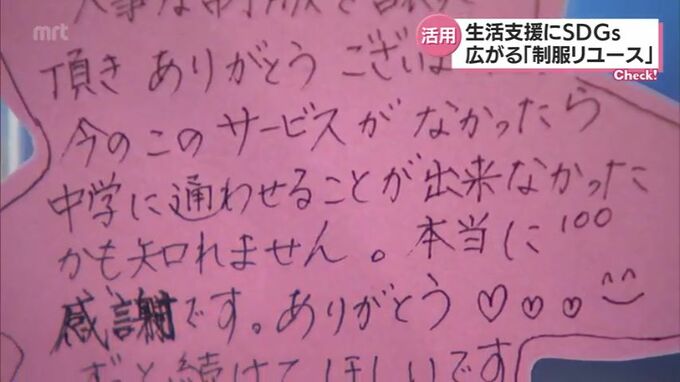 mrt
活用
生活支援にSDGs
広がる「制服リユース」
Check!
頂き ありがとう ございま
今のこのサービスが なかったら
中学に通わせることが出来なかった
かも知れません。本当に100
感謝です。ありがとう♡♡♡
ずっと続けてほしいです